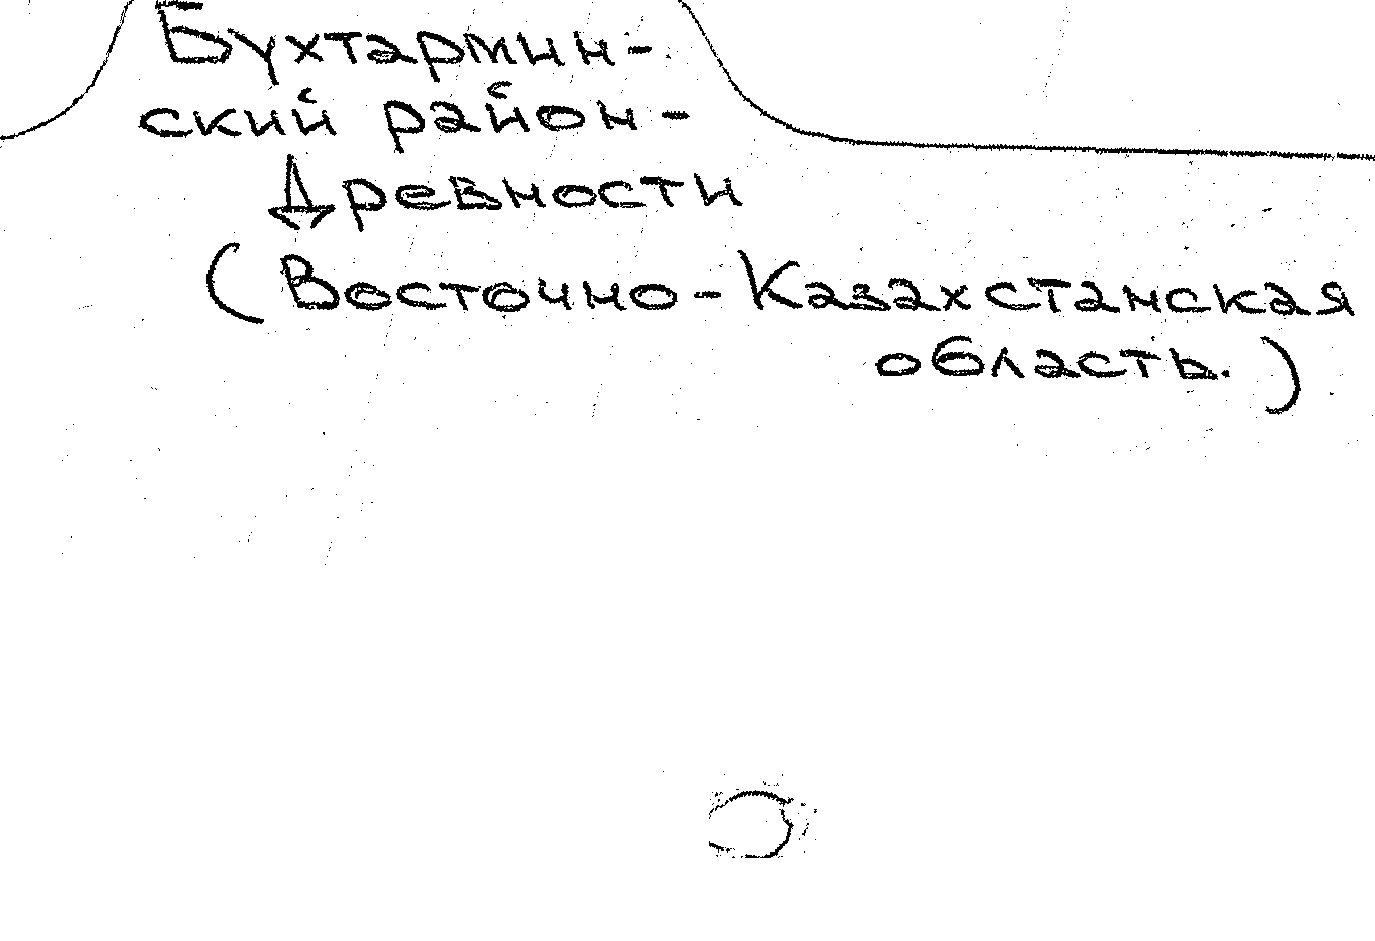 Бухтармин-
ский район-
Древности
(Восточно-Казахстанская
область.)